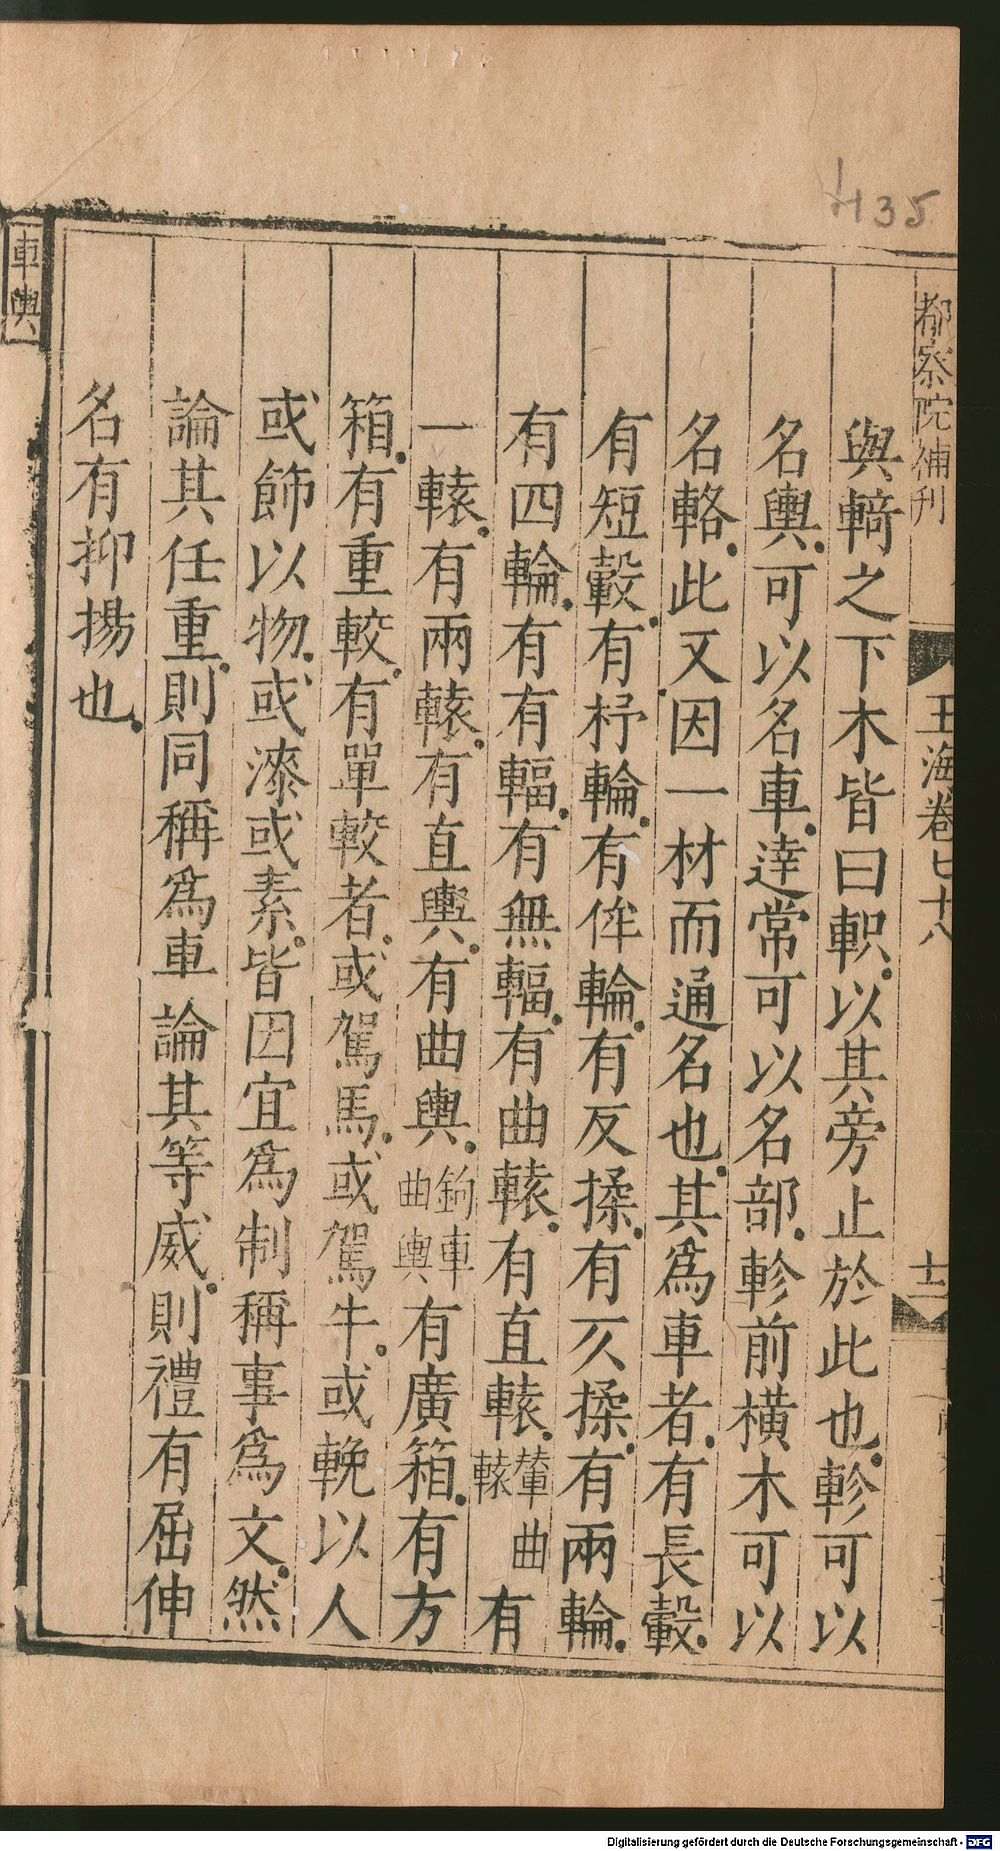 H35
都察院補刊
玉海卷七十八
十二
與輢之下木皆曰軹以其旁止於此也軫可以
名輿可以名車達常可以名部軫前橫木可以
名輅此又因一材而通名也其爲車者有長轂
有短轂有杼輪有侔輪有反揉有仄揉有兩輪
有四輪有有輻有無輻有曲轅有直轅輦曲轅有
一轅有兩轅有直輿有曲輿鉤車曲輿有廣箱有方
箱有重較有單較者或駕馬或駕牛或輓以人
或飾以物或漆或素皆因宜爲制稱事爲文然
論其任重則同稱爲車論其等威則禮有屈伸
名有抑揚也
車輿
Digitalisierung gefördert durch die Deutsche Forschungsgemeinschaft - DFG